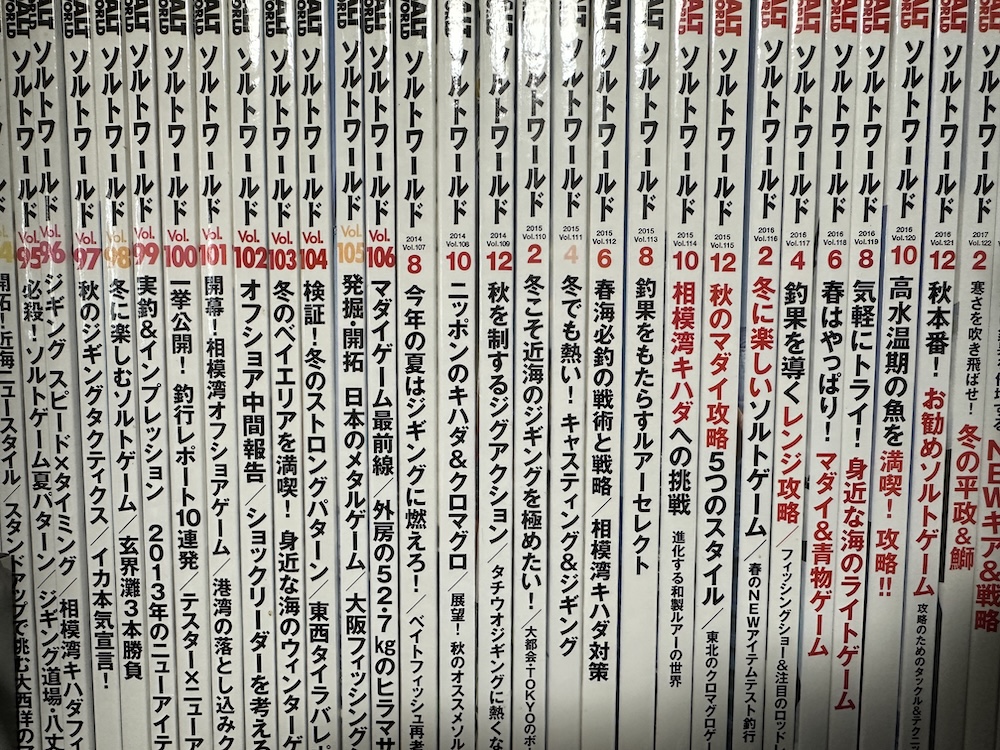 ソルトワールド
開拓！近海ニュースタイル／スタンドアップで挑む大西洋の
SALT WORLD ソルトワールド Vol. 95 必殺！ソルトゲーム夏パターン／ジギング道場・八丈
SALT WORLD ソルトワールド Vol. 96 ジギング スピード×タイミング／相模湾キハダフィ
SALT WORLD ソルトワールド Vol. 97 秋のジギングタクティクス／イカ本気宣言！
SALT WORLD ソルトワールド Vol. 98 冬に楽しむソルトゲーム／玄界灘3本勝負
SALT WORLD ソルトワールド Vol. 99 実釣&インプレッション 2013年のニューアイテ
SALT WORLD ソルトワールド Vol. 100 一挙公開！釣行レポート10連発／テスター×ニューア
SALT WORLD ソルトワールド Vol. 101 開幕！相模湾オフショアゲーム／港湾の落とし込みク
SALT WORLD ソルトワールド Vol. 102 オフショア中間報告／ショックリーダーを考える
SALT WORLD ソルトワールド Vol. 103 冬のベイエリアを満喫！身近な海のウィンターゲ
SALT WORLD ソルトワールド Vol. 104 検証！冬のストロングパターン／東西タイラバレ
SALT WORLD ソルトワールド Vol. 105 発掘・開拓 日本のメタルゲーム／大阪フィッシング
SALT WORLD ソルトワールド Vol. 106 マダイゲーム最前線／外房の52・7kgのヒラマサ
SALT WORLD ソルトワールド 2014 Vol.107 8 今年の夏はジギングに燃えろ！／ベイトフィッシュ再考
SALT WORLD ソルトワールド 2014 Vol.108 10 ニッポンのキハダ&クロマグロ 展望！秋のオススメソル
SALT WORLD ソルトワールド 2014 Vol.109 12 秋を制するジグアクション／タチウオジギングに熱くな
SALT WORLD ソルトワールド 2015 Vol.110 2 冬こそ近海のジギングを極めたい！／大都会・TOKYOのボー
SALT WORLD ソルトワールド 2015 Vol.111 4 冬でも熱い！キャスティング&ジギング
SALT WORLD ソルトワールド 2015 Vol.112 6 春海必釣の戦術と戦略／相模湾キハダ対策
SALT WORLD ソルトワールド 2015 Vol.113 8 釣果をもたらすルアーセレクト
SALT WORLD ソルトワールド 2015 Vol.114 10 相模湾キハダへの挑戦 進化する和製ルアーの世界
SALT WORLD ソルトワールド 2015 Vol.115 12 秋のマダイ攻略5つのスタイル／東北のクロマグロゲー
SALT WORLD ソルトワールド 2016 Vol.116 2 冬に楽しいソルトゲーム／春のNEWアイテムテスト釣行
SALT WORLD ソルトワールド 2016 Vol.117 4 釣果を導くレンジ攻略／フィッシングショー&注目のロッド・レ
SALT WORLD ソルトワールド 2016 Vol.118 6 春はやっぱり！マダイ&青物ゲーム
SALT WORLD ソルトワールド 2016 Vol.119 8 気軽にトライ！身近な海のライトゲーム
SALT WORLD ソルトワールド 2016 Vol.120 10 高水温期の魚を満喫！攻略!!
SALT WORLD ソルトワールド 2016 Vol.121 12 秋本番！お勧めソルトゲーム 攻略のためのタックル&テクニ
SALT WORLD ソルトワールド 2017 Vol.122 2 寒さを吹き飛ばせ！冬の平政&鰤
NEWギア&戦略